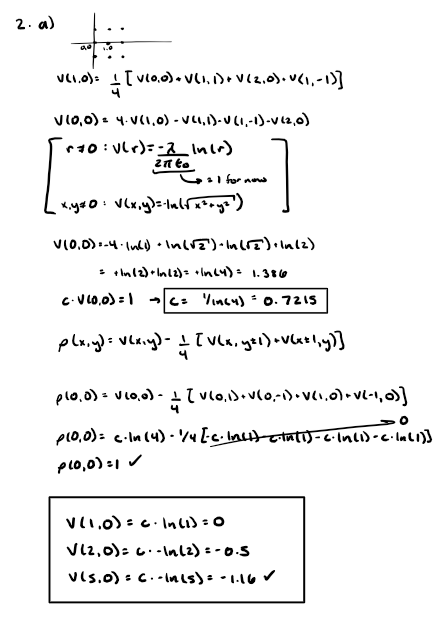 2. a)
0,0 1,0
V(1,0) = 1/4 [V(0,0) + V(1,1) + V(2,0) + V(1,-1)]
V(0,0) = 4·V(1,0) - V(1,1) - V(1,-1) - V(2,0)
r≠0 : V(r) = -λ/(2πε₀) ln(r)
→ = 1 for now
x,y≠0 : V(x,y) = -ln(√(x²+y²))
V(0,0) = -4·ln(1) + ln(√2) + ln(√2) + ln(2)
= +ln(2) + ln(2) = +ln(4) = 1.386
c·V(0,0) = 1 → c = 1/ln(4) = 0.7215
ρ(x,y) = V(x,y) - 1/4 [V(x,y±1) + V(x±1,y)]
ρ(0,0) = V(0,0) - 1/4 [V(0,1) + V(0,-1) + V(1,0) + V(-1,0)]
0
ρ(0,0) = c·ln(4) - 1/4 [-c·ln(1) - c·ln(1) - c·ln(1) - c·ln(1)]
ρ(0,0) = 1 ✓
V(1,0) = c·ln(1) = 0
V(2,0) = c·-ln(2) = -0.5
V(5,0) = c·-ln(5) = -1.16 ✓